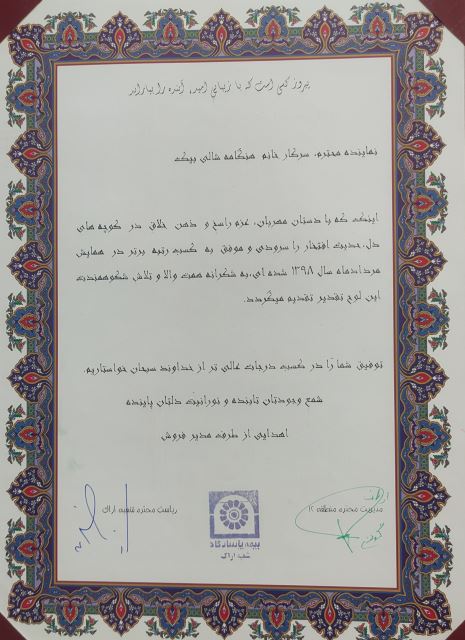 پیروز کسی است که با زیبایی امید، آینده را بیاراید
نماینده محترم، سرکار خانم هنگامه شالی بیک
اینک که با دستان مهربان، عزم راسخ و ذهن خلاق در کوچه های
دل، حدیث افتخار را سرودی و موفق به کسب رتبه برتر در همایش
مردادماه سال ۱۳۹۸ شده ای، به شکرانه همت والا و تلاش شکوهمندت
این لوح تقدیر تقدیم میگردد.
توفیق شما را در کسب درجات عالی تر از خداوند سبحان خواستاریم.
شمع وجودتان تابنده و نورانیت دلتان پاینده
اهدایی از طرف مدیر فروش
مدیریت محترم منطقه ۱۲
ریاست محترم شعبه اراک
بیمه پاسارگاد
شعبه اراک